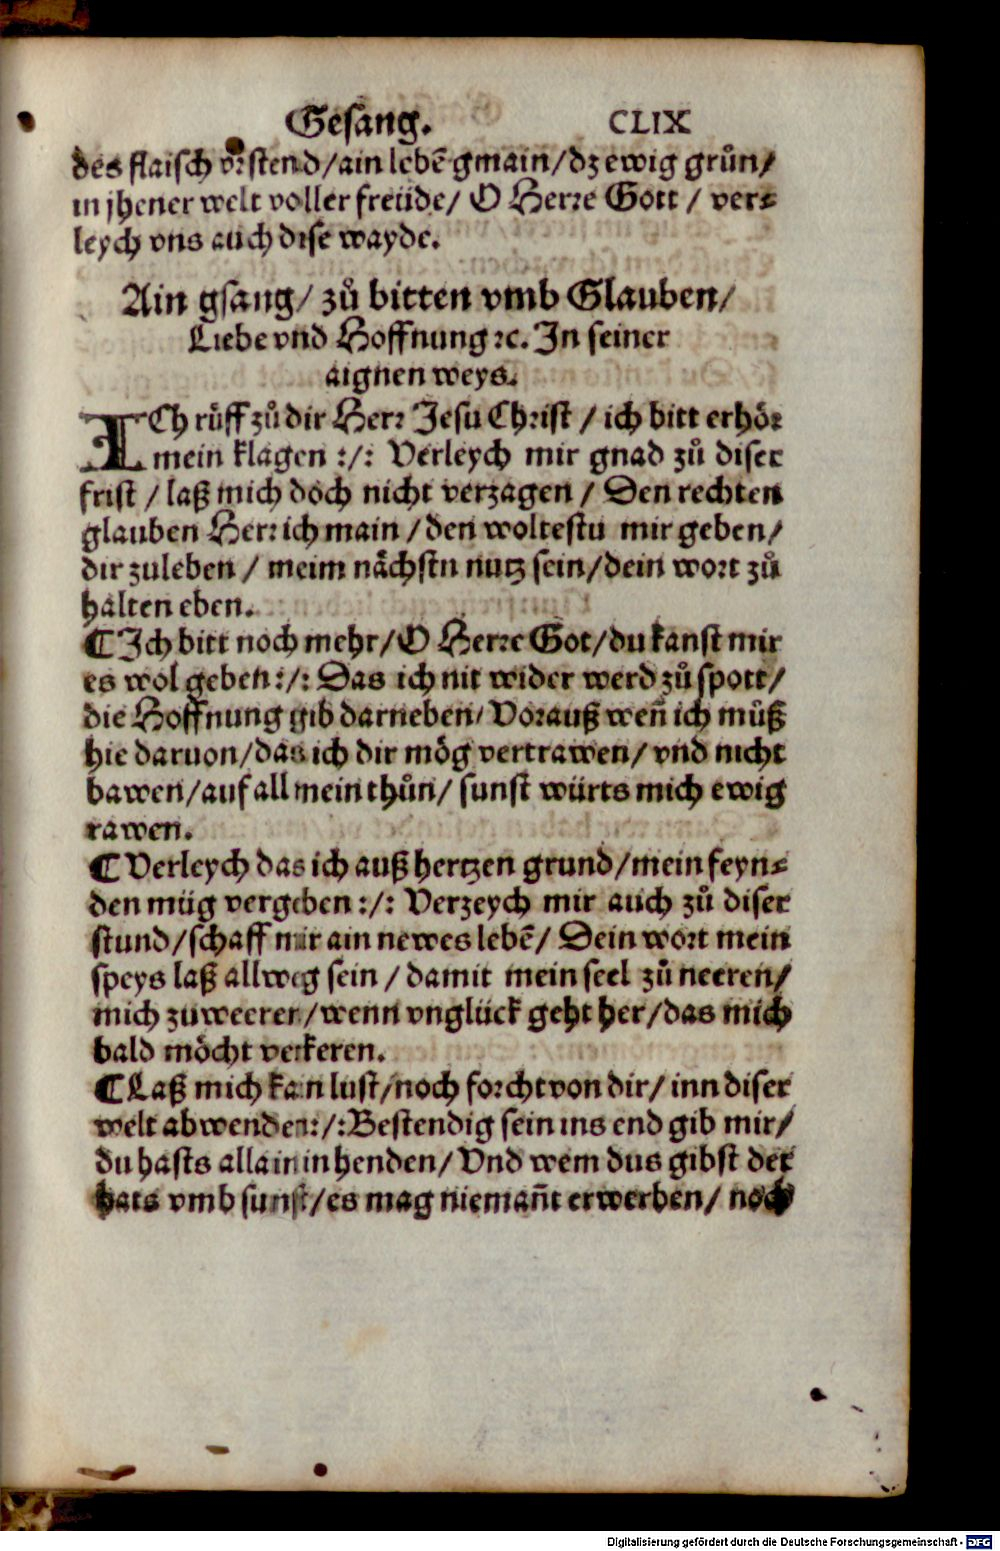 Gesang. CLIX
des flaisch vrstend/ain lebē gmain/dz ewig grůn/
in jhener welt voller freüde/ O Herre Gott / ver-
leych vns auch dise wayde.
Ain gsang/ zů bitten vmb Glauben/
Liebe vnd Hoffnung ꝛc. In seiner
aignen weys.
ICh růff zů dir Herr Jesu Christ / ich bitt erhör
mein klagen :/: Verleych mir gnad zů diser
frist / laß mich doch nicht verzagen / Den rechten
glauben Herr ich main / den woltestu mir geben/
dir zuleben / meim nächstn nutz sein/dein wort zů
halten eben.
¶ Ich bitt noch mehr/O Herre Got/du kanst mir
es wol geben :/: Das ich nit wider werd zů spott/
die Hoffnung gib darneben/ Vorauß weñ ich můß
hie daruon/das ich dir mög vertrawen/ vnd nicht
bawen/auf all mein thůn/ sunst würts mich ewig
rawen.
¶ Verleych das ich auß hertzen grund/mein feyn-
den müg vergeben :/: Verzeych mir auch zů diser
stund/schaff mir ain newes lebē/ Dein wort mein
speys laß allweg sein / damit mein seel zů neeren/
mich zuweeren/wenn vnglück geht her/das mich
bald möcht verkeren.
¶ Laß mich kain lust/noch forcht von dir/ inn diser
welt abwenden:/:Bestendig sein ins end gib mir/
du hasts allain in henden/ Vnd wem dus gibst der
hats vmb sunst/es mag niemañt erwerben/ noch
Digitalisierung gefördert durch die Deutsche Forschungsgemeinschaft - DFG